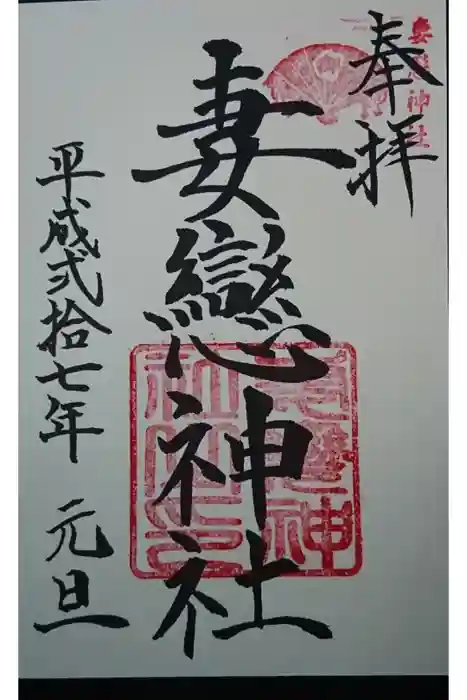 妻戀神社
奉拝
妻戀神社
平成弐拾七年 元旦